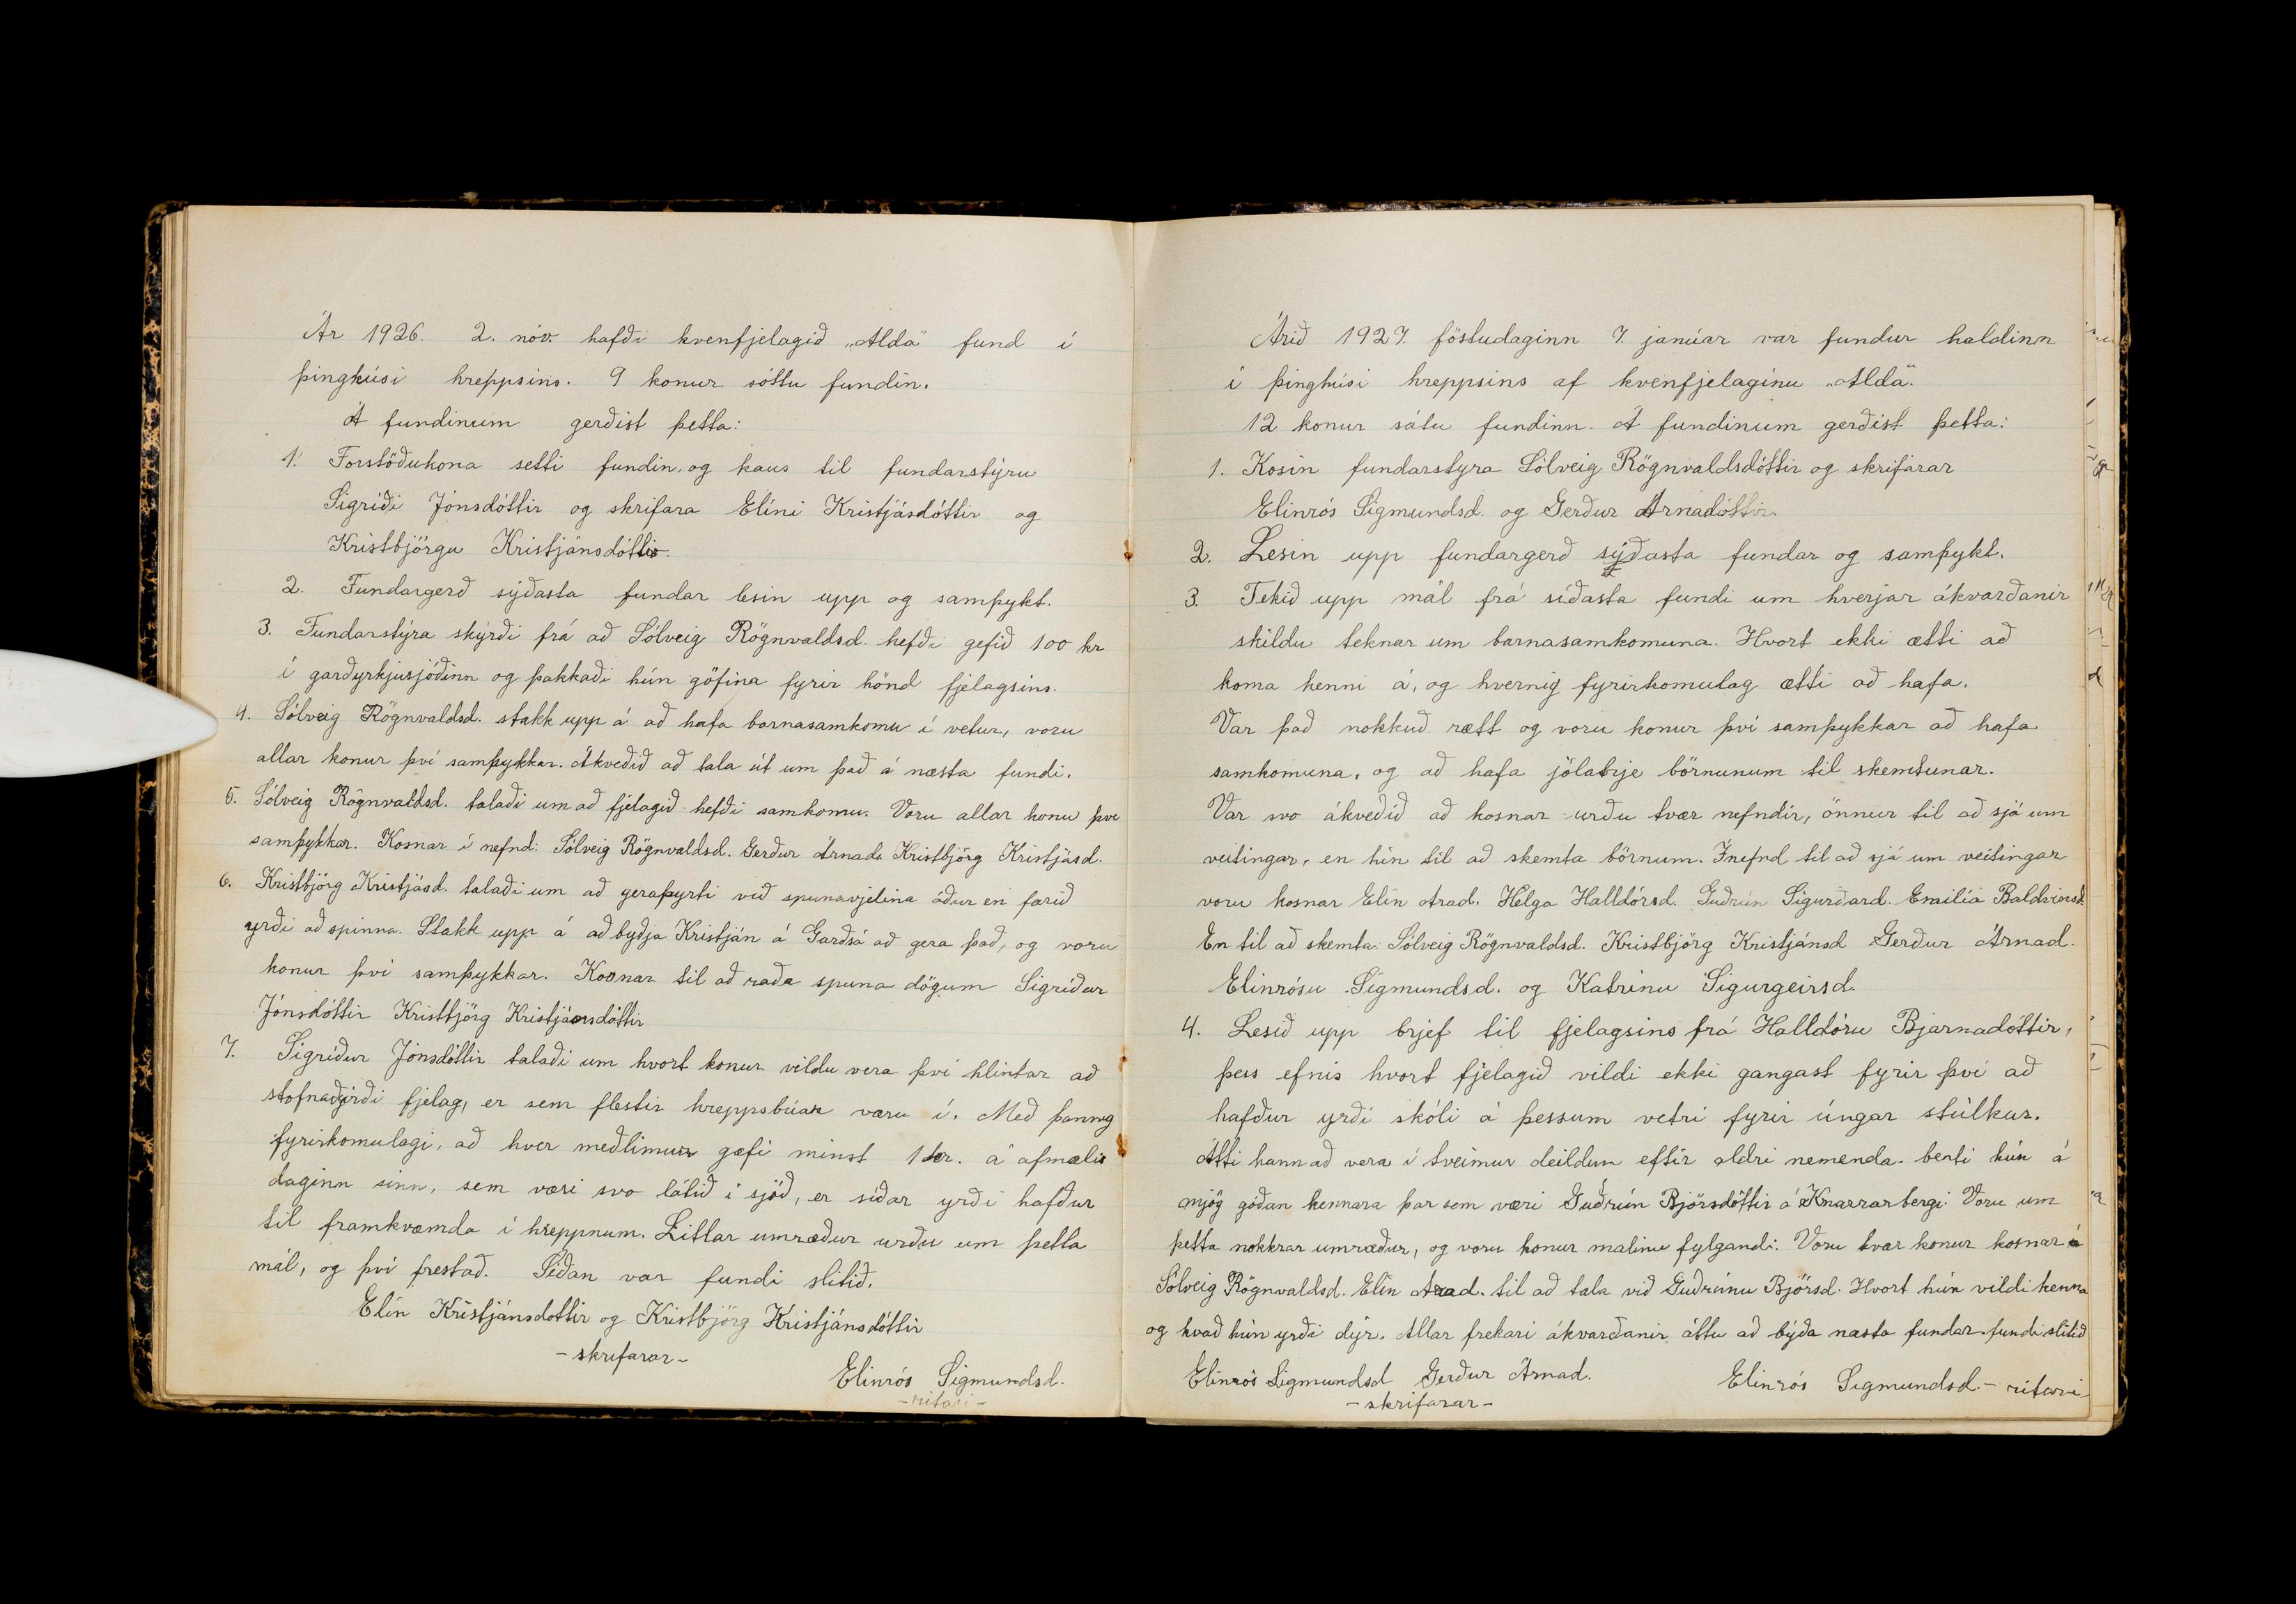 Ár 1926. 2. nóv. hafði kvenfjelagið „Alda" fund í
þinghúsi hreppsins. 9 konur sóttu fundin.
Á fundinum gerðist þetta:
1. Forstöðukona setti fundin, og kaus til fundarstýru
Sigríði Jónsdóttir og skrifara Elíni Kristjásdóttir og
Kristbjörgu Kristjánsdóttir.
2. Fundargerð sýðasta fundar lesin upp og samþykt.
3. Fundarstýra skýrði frá að Sólveig Rögnvaldsd. hefði gefið 100 kr
í garðyrkjusjóðinn og þakkaði hún göfina fyrir hönd fjelagsins.
4. Sólveig Rögnvaldsd. stakk upp á að hafa barnasamkomu í vetur, voru
allar konur því samþykkar. Ákveðið að tala út um það á næsta fundi.
5. Sólveig Rögnvaldsd. talaði um að fjelagið hefði samkomu. Voru allar konu því
samþykkar. Kosnar í nefnd: Sólveig Rögnvaldsd. Gerður Árnad. Kristbjörg Kristjásd.
6. Kristbjörg Kristjásd. talaði um að geraþyrti við spunavjelina áður en farið
yrði að spinna. Stakk upp á að byðja Kristján á Garðsá að gera það, og voru
konur því samþykkar. Kosnar til að raða spuna dögum Sigríður
Jónsdóttir Kristbjörg Kristjánsdóttir
7. Sigríður Jónsdóttir talaði um hvort konur vildu vera því hlintar að
stofnaðyrði fjelag, er sem flestir hreppsbúar væru í. Með þannig
fyrirkomulagi, að hver meðlimur gæfi minst 1 kr. á afmælis
daginn sinn, sem væri svo látið í sjóð, er síðar yrði hafður
til framkvæmda í hreppnum. Litlar umræður urðu um þetta
mál, og því frestað. Síðan var fundi slitið.
Elín Kristjánsdóttir og Kristbjörg Kristjánsdóttir
- skrifarar -
Elinrós Sigmundsd.
- ritari -
Árið 1927. föstudaginn 7. janúar var fundur haldinn
í þinghúsi hreppsins af kvenfjelaginu „Alda".
12 konur sátu fundinn. Á fundinum gerðist þetta:
1. Kosin fundarstyra Sólveig Rögnvaldsdóttir og skrifarar
Elinrós Sigmundsd. og Gerður Árnadóttir.
2. Lesin upp fundargerð sýðasta fundar og samþykt.
3. Tekið upp mál frá síðasta fundi um hverjar ákvarðanir
skildu teknar um barnasamkomuna. Hvort ekki ætti að
koma henni á, og hvernig fyrirkomulag ætti að hafa.
Var það nokkuð rætt og voru konur því samþykkar að hafa
samkomuna, og að hafa jólatrje börnunum til skemtunar.
Var svo ákveðið að kosnar urðu tvær nefndir, önnur til að sjá um
veitingar, en hin til að skemta börnum. Í nefnd til að sjá um veitingar
voru kosnar Elín Arad. Helga Halldórsd. Guðrún Sigurðard. Emilía Baldvinsd.
En til að skemta: Sólveig Rögnvaldsd. Kristbjörg Kristjánsd Gerður Árnad.
Elinrósu Sigmundsd. og Katrínu Sigurgeirsd.
4. Lesið upp brjef til fjelagsins frá Halldóru Bjarnadóttir,
þess efnis hvort fjelagið vildi ekki gangast fyrir því að
hafður yrði skóli á þessum vetri fyrir úngar stúlkur.
Átti hann að vera í tveimur deildum eftir aldri nemenda. benti hún á
mjög góðan kennara þar sem væri Guðrún Björsdóttir á Knarrarbergi. Voru um
þetta nokkrar umræður, og voru konur malinu fylgandi. Voru tvær konur kosnar
Sólveig Rögnvaldsd. Elín Arad. til að tala við Guðrúnu Björsd. Hvort hún vildi kenna
og hvað hún yrði dýr. Allar frekari ákvarðanir áttu að býða næsta fundar. fundi slitið
Elinrós Sigmundsd Gerður Árnad.
- skrifarar -
Elinrós Sigmundsd. - ritari